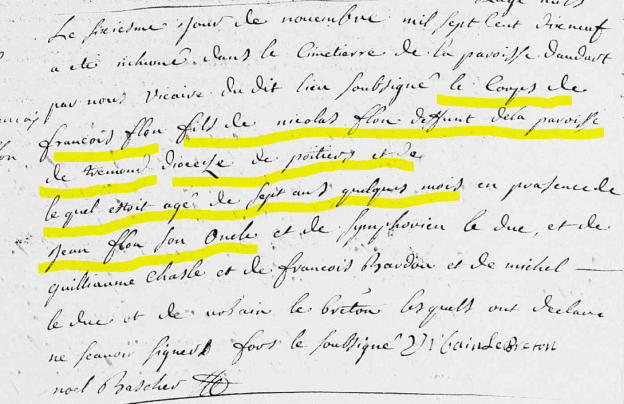 Le sixiesme jour de novembre mil sept cent dixneuf
a eté inhumé dans le Cimetierre de la paroisse dandart
par nous vicaire du dit lieu soubsigné le Corps de
francois flon fils de nicolas flon deffunt dela paroisse
de tremont diocese de poitiers et de
lequel estoit agé de sept ans quelques mois en presence de
jean flon son Oncle et de symphorien le duc, et de
guilliaume Chasle et de francois Bardou et de michel
le duc et de urbain le breton lesquels ont declaré
ne scavoir signer fors le soubsigné Vrbain Le Breton
noel Bascher